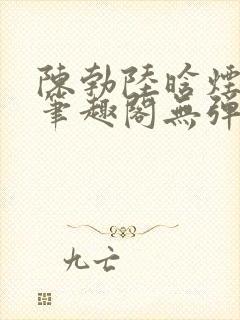 陳勃陸晗煙
筆趣閣無彈
九亡